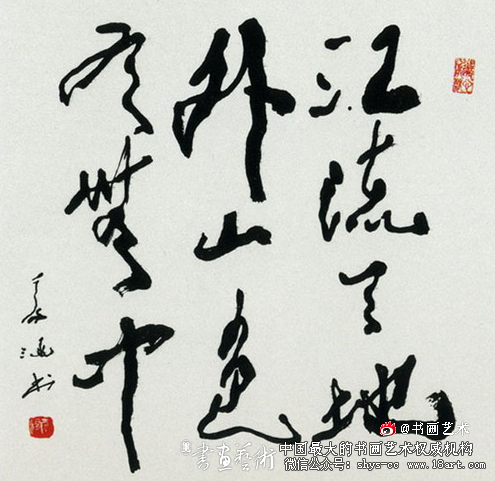 江流天地
外山色
有無中
@书画艺术
書畫藝術
中国最大的书画艺术权威机构
微信公众号：shys-cc www.18art.com